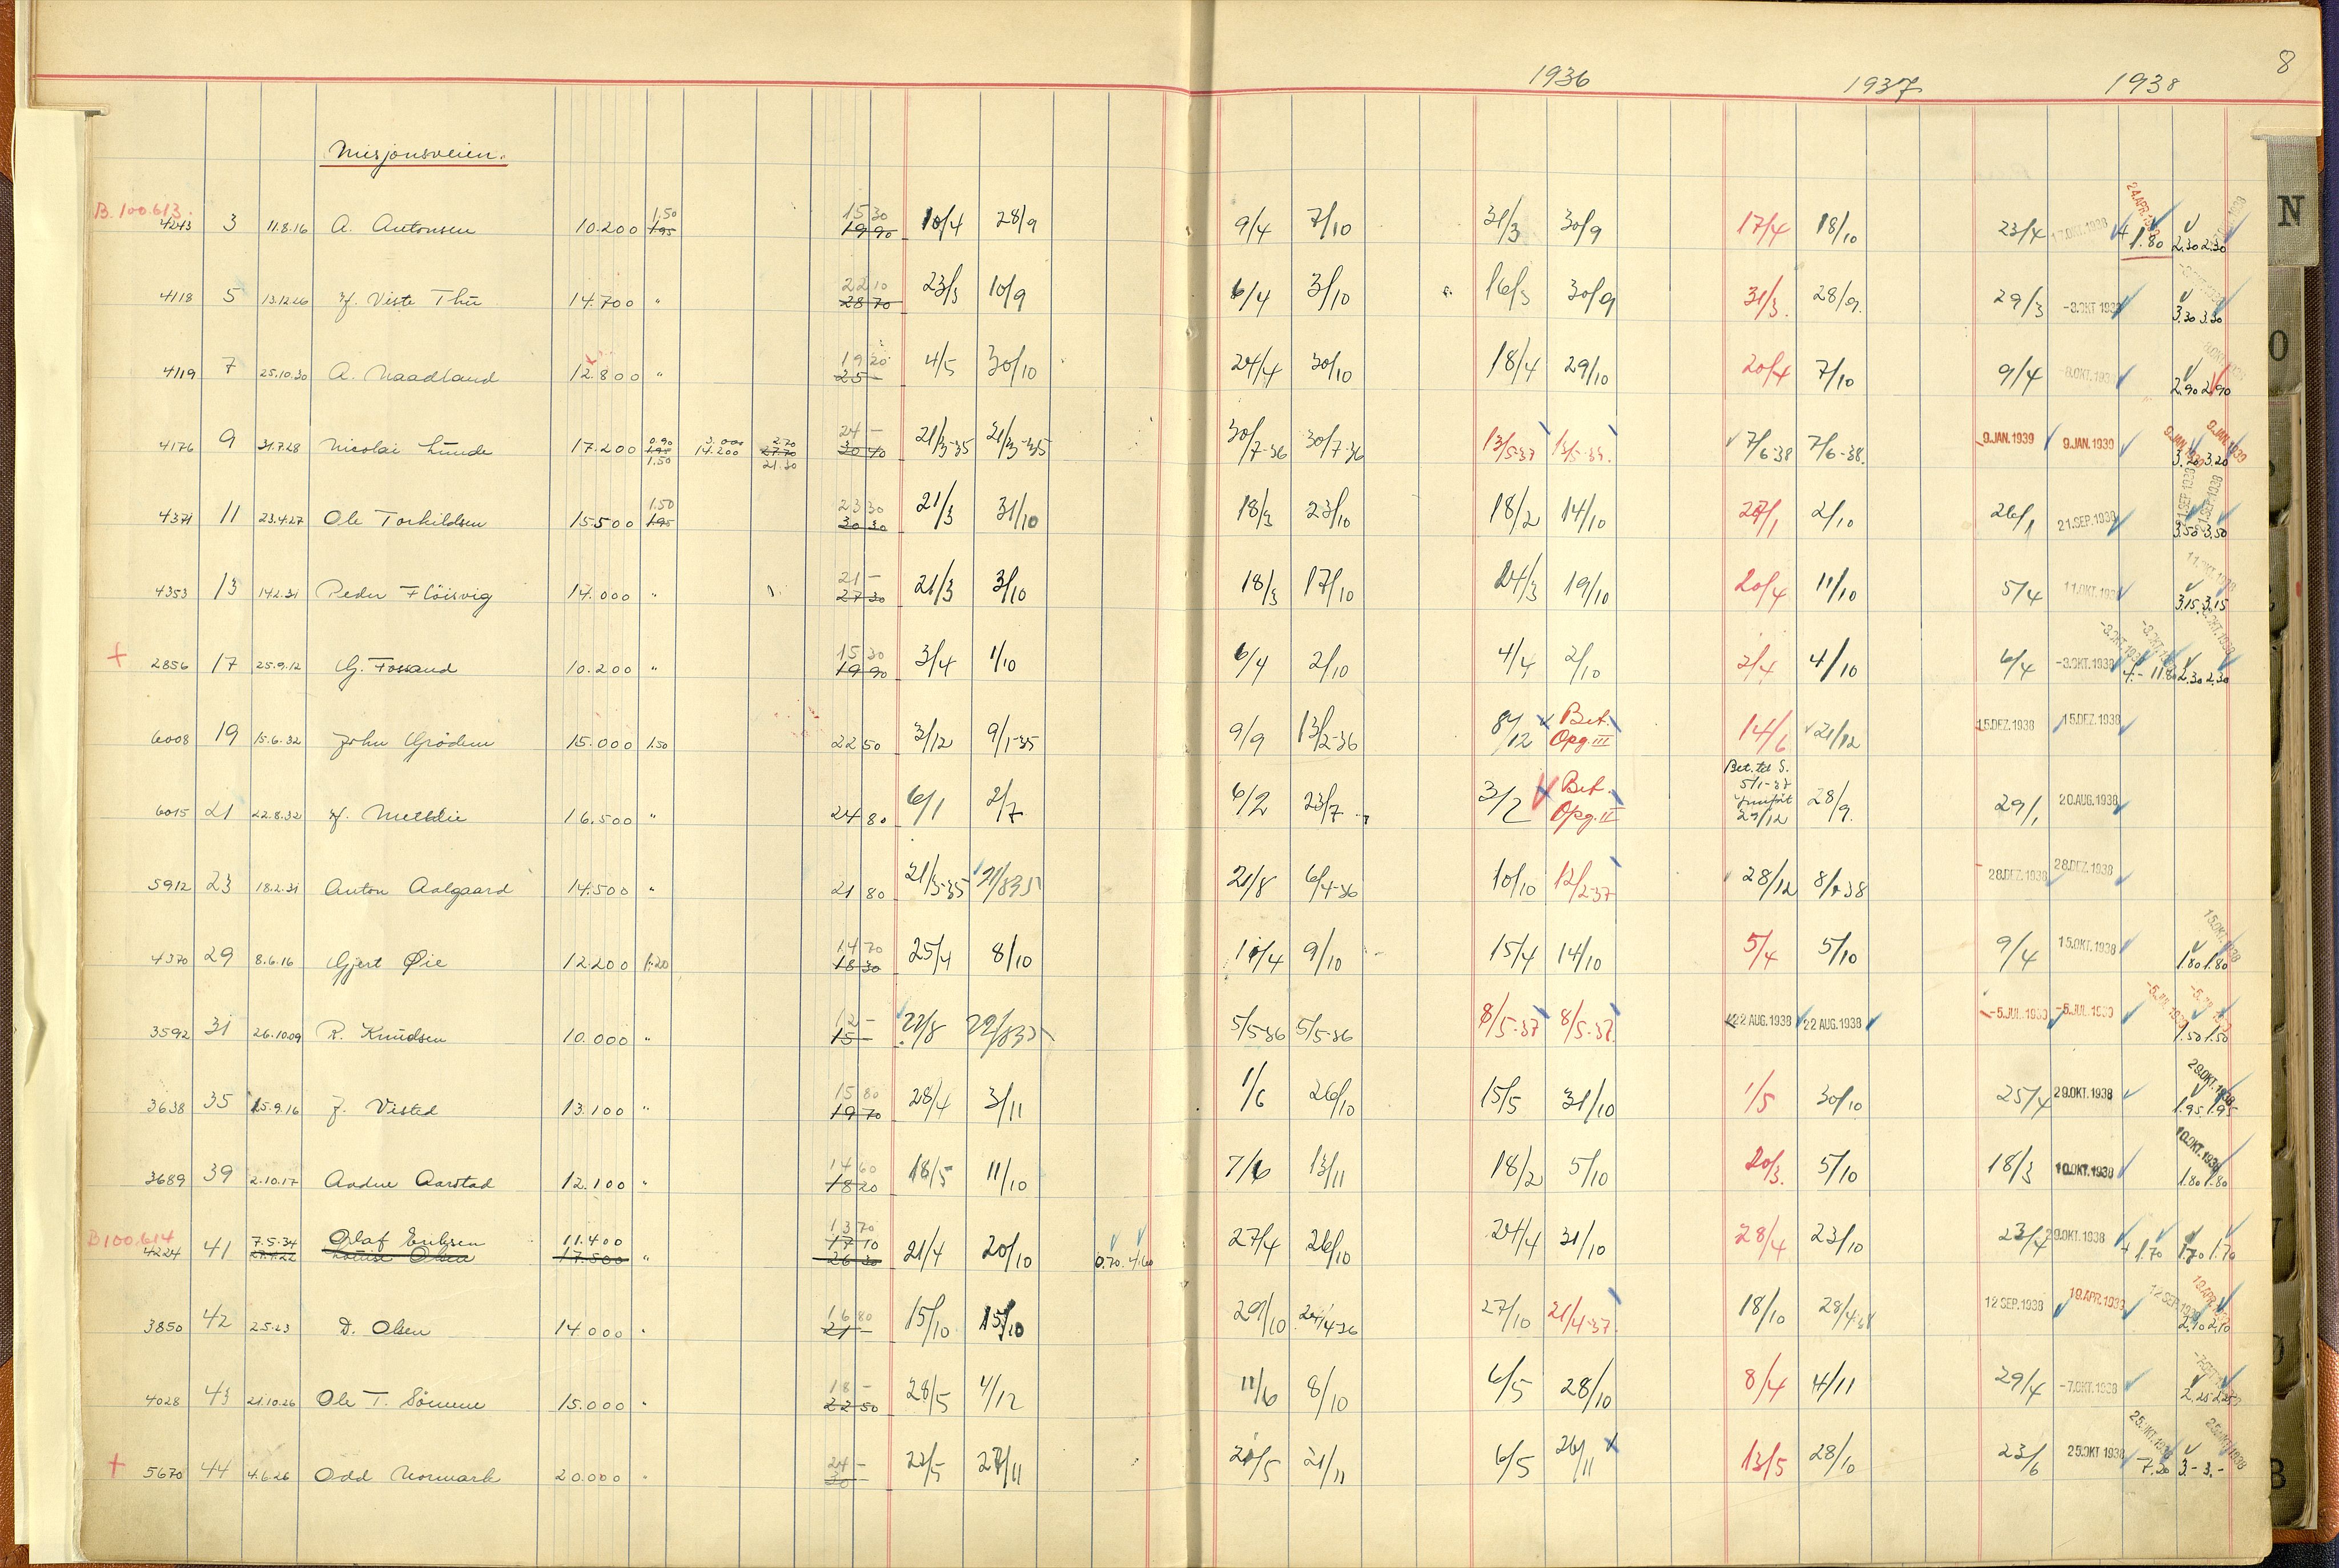 8
1936 1937 1938
Misjonsveien.
B.100.613.
4243 3 11.8.16 A. Antonsen 10.200 1.50 1.95 15 30 19 90 10/4 28/9 9/4 7/10 31/3 30/9 17/4 18/10 23/4 17.OKT.1938 + 1.80 2.30 2.30
4118 5 13.12.26 J. Viste Thu 14.700 " 22 10 28 70 23/3 10/9 6/4 3/10 16/3 30/9 31/3. 28/9. 29/3 -3.OKT 1938 3.30 3.30
4119 7 25.10.30 A. Naadland 12.800 " 19 20 25 - 4/5 30/10 24/4 30/10 18/4 29/10 20/4 7/10 9/4 -8.OKT.1938 2.90 2.90
4176 9 31.7.28 Nicolai Lunde 17.200 0.90 1.95 1.50 3.000 14.200 2.70 27.70 21.30 24 - 30 40 21/3-35 21/3-35 30/7-36 30/7-36 13/5-37 13/5-37. 7/6-38 7/6-38. 9.JAN.1939 9.JAN.1939 3.20 3.20
4371 11 23.4.27 Ole Torkildsen 15.500 1.50 1.95 23 30 30 30 21/3 31/10 18/3 23/10 18/2 14/10 27/1 2/10 26/1 21.SEP.1938 3.50 3.50
4353 13 14.2.31 Peder Flöisvig 14.000 " 21 - 27 30 21/3 3/10 18/3 17/10 24/3 19/10 20/4 11/10 5/4 11.OKT.1938 3.15 3.15
+ 2856 17 25.9.12 G. Fossand 10.200 " 15 30 19 90 3/4 1/10 6/4 2/10 4/4 2/10 2/4 4/10 6/4 -3.OKT.1938 4.- 11.80 2.30 2.30
6008 19 15.6.32 John Grödem 15.000 1.50 22 50 3/12 9/1-35 9/9 13/2-36 8/12 Bet. Opg. III 14/6 21/12 15.DEZ.1938 15.DEZ.1938
6015 21 22.8.32 16.500 " 24 80 6/1 2/7 6/2 23/7 3/2 Bet. Opg. II Bet. til S. 5/1-37 29/12 28/9. 29/1 20.AUG.1938
5912 23 18.2.31 Anton Aalgaard 14.500 " 21 80 21/3-35 21/8 35 21/8 6/4-36 10/10 12/2-37 28/12 8/1-38 28.DEZ.1938 28.DEZ.1938
4370 29 8.6.16 Gjert Øie 12.200 1.20 14 70 18 30 25/4 8/10 14/4 9/10 15/4 14/10 5/4 5/10 9/4 15.OKT.1938 1.80 1.80
3592 31 26.10.09 R. Knudsen 10.000 " 12 - 15 - 22/8 22/8 35 5/5-36 5/5-36 8/5-37 8/5-37. 22 AUG.1938 22 AUG.1938 -5.JUL.1939 -5.JUL.1939 1.50 1.50
3638 35 15.9.16 J. Visted 13.100 " 15 80 19 70 28/4 3/11 1/6 26/10 15/5 31/10 1/5 30/10 25/4 29.OKT.1938 1.95 1.95
3689 39 2.10.17 Andne Aarstad 12.100 " 14 60 18 20 18/5 11/10 7/6 13/11 18/2 5/10 20/3. 5/10 18/3 10.OKT.1938 1.80 1.80
B100.614
4224 41 7.5.34 Olaf Eriksen 11.400 13 70 17 10 21/4 20/10 0.70 4.60 27/4 26/10 24/4 31/10 28/4 23/10 23/4 29.OKT.1938 + 1.70 1.70 1.70
Olsen 17.500 "
3850 42 2.5.23 D. Olsen 14.000 " 16 80 21 - 15/10 15/10 29/10 24/4-36 27/10 21/4-37. 18/10 28/4-38 12 SEP.1938 19.APR.1939 2.10 2.10
4028 43 21.10.26 Ole T. Sömme 15.000 " 18 - 22 50 28/5 4/12 11/6 8/10 6/5 28/10 8/4 4/11 29/4 -7.OKT.1938 2.25 2.25
+ 5670 44 4.6.26 Odd Normark 20.000 " 24 - 30 - 22/5 27/11 20/5 21/11 6/5 26/11 13/5 28/10 23/6 25.OKT 1938 7.30 3.- 3.-
N
O